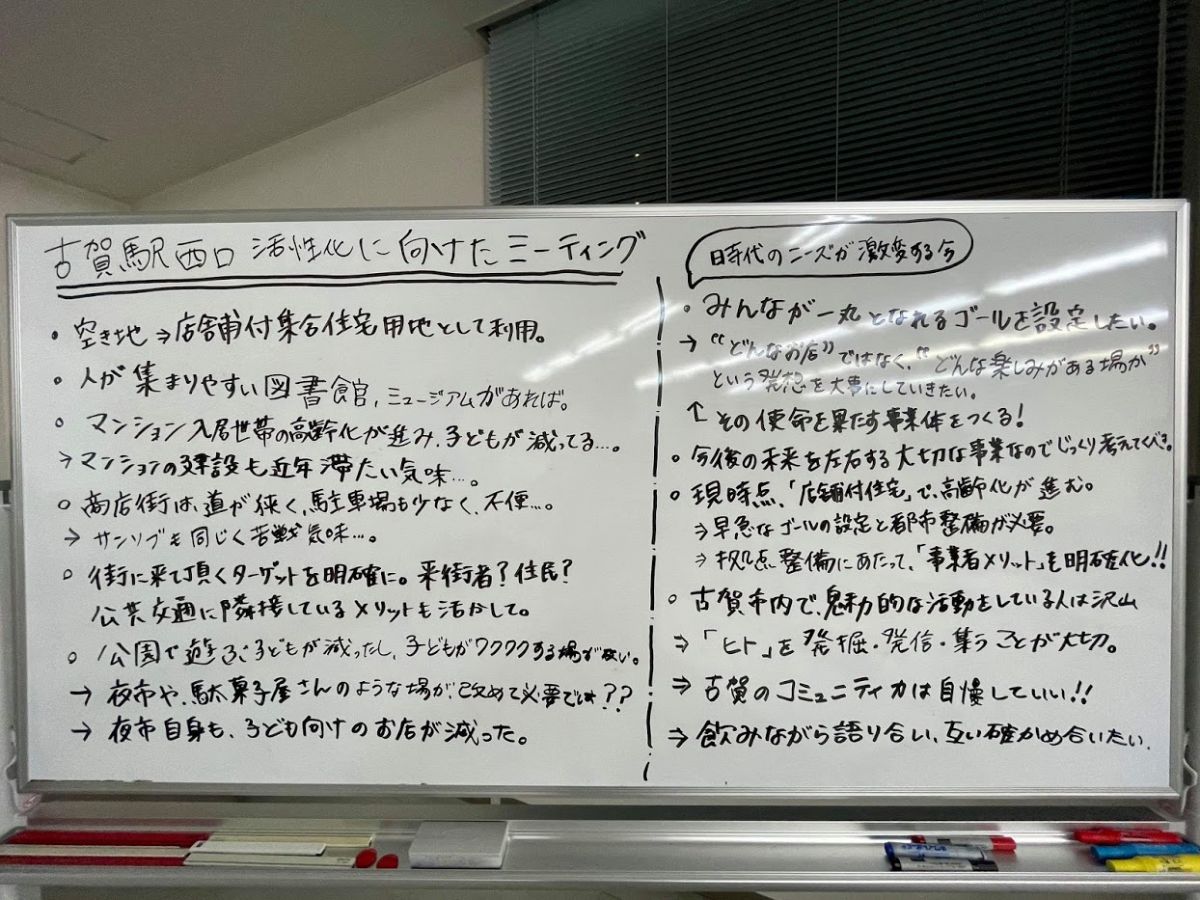 古賀駅西口 活性化に向けたミーティング
・空き地⇒店舗付集合住宅用地として利用。
・人が集まりやすい図書館、ミュージアムがあれば。
・マンション入居世帯の高齢化が進み、子どもが減ってる…。
→マンションの建設も近年滞たい気味…。
・商店街は、道が狭く、駐車場も少なく、不便…。
→サンリブも同じく苦戦気味…。
・街に来て頂くターゲットを明確に。来街者？住民？
公共交通に隣接しているメリットも活かして。
・公園で遊ぶ子どもが減ったし、子どもがワクワクする場が
→夜市や、駄菓子屋さんのような場が、改めて必要では？？
→夜市自身も、子ども向けのお店が減った。
時代のニーズが激変する今
・みんなが一丸となれるゴールを設定したい。
→“どんなお店”ではなく、“どんな楽しみがある場か”
という発想を大事にしていきたい。
↑その使命を果たす事業体をつくる！
・今後の未来を左右する大切な事業なのでじっくり考えてくべき。
・現時点、「店舗付住宅」で、高齢化が進む。
⇒早急なゴールの設定と都市整備が必要。
⇒拠点整備にあたって、「事業者メリット」も明確化!!
・古賀市内で、魅力的な活動をしている人は沢山
⇒「ヒト」を発掘・発信・集うことが大切。
⇒古賀のコミュニティ力は自慢していい!!
⇒飲みながら語り合い、互い確かめ合いたい．